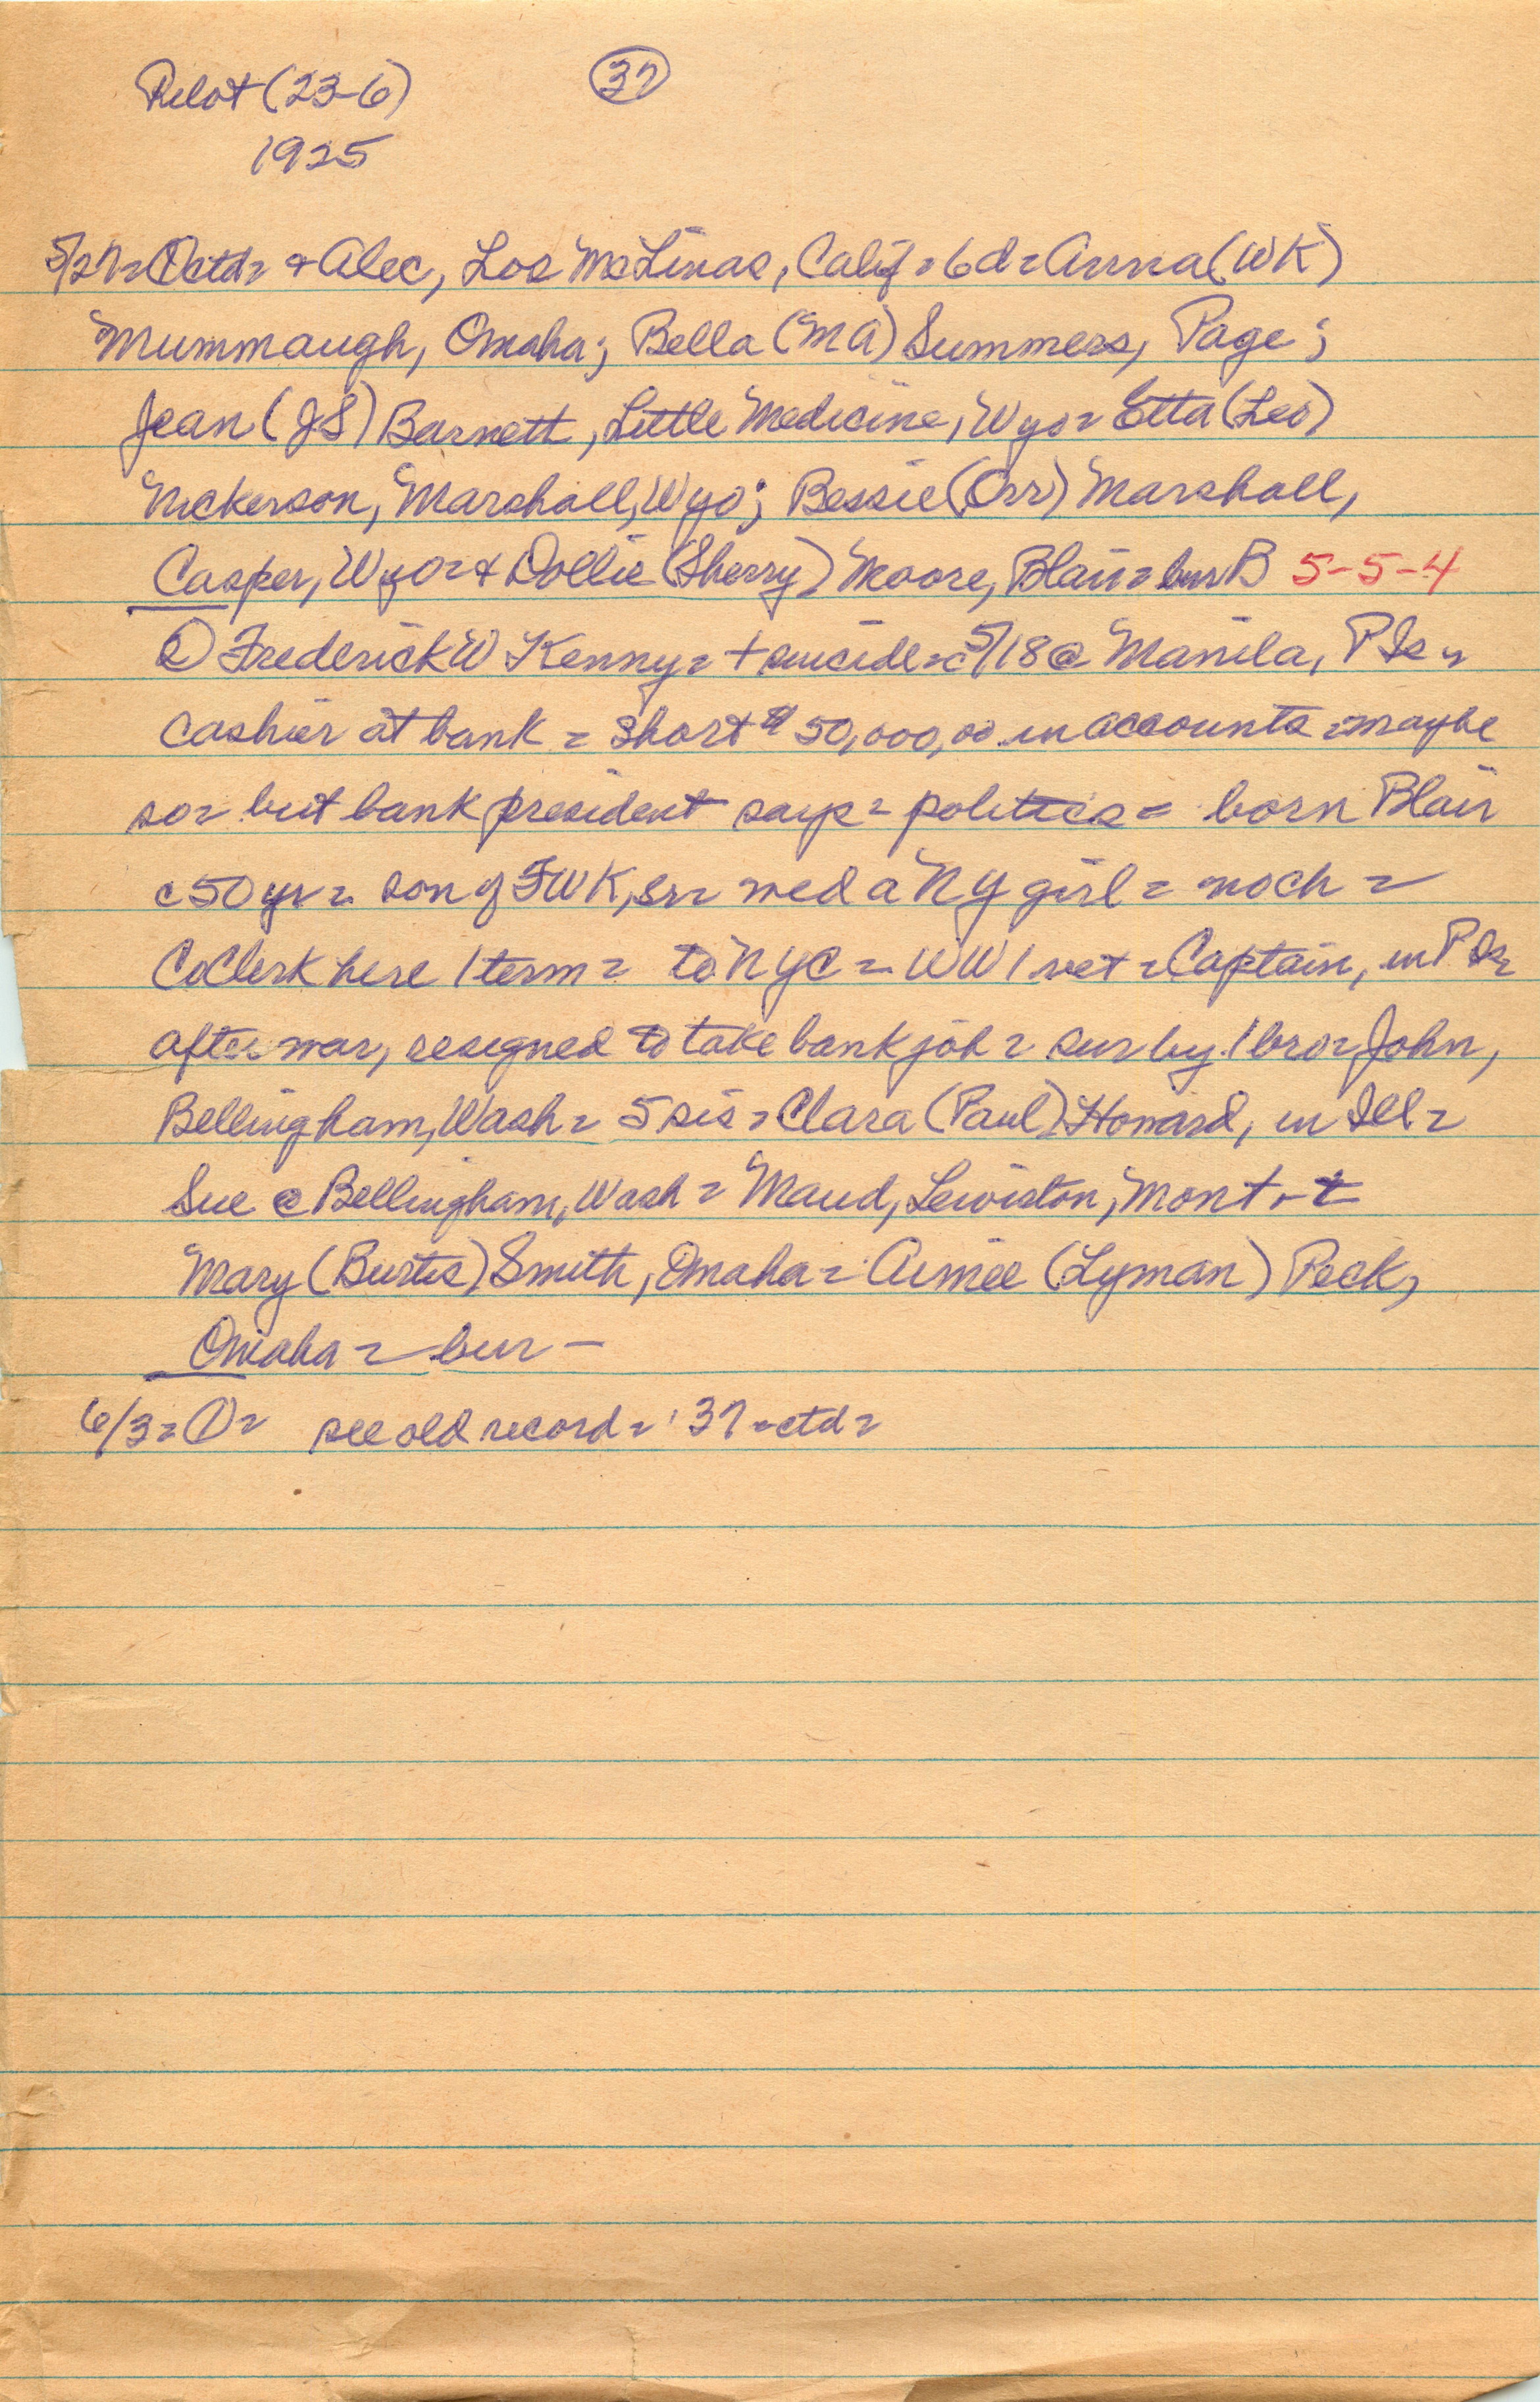 Pilot (23-6) 37
1925
5/27= ① ctd= + Alec, Los McLinas, Calif = 6d= Anna (WK)
Mummaugh, Omaha; Bella (MA) Summers, Page;
Jean (JS) Barnett, Little Medicine, Wyo= Etta (Leo)
Nickerson, Marshall, Wyo; Bessie (Orr) Marshall,
Casper, Wyo= + Dollie (Sherry) Moore, Blair= bur B 5-5-4
② Frederick W Kenny= + suicide= c5/18 @ Manila, PIs=
cashier at bank = short $50,000.00 in accounts = maybe
so= but bank president says= politics = born Blair
c50yr= son of FWK, sr= wed a NY girl = noch =
CoClerk here 1 term = to NYC = WW1 vet = Captain, in PIs=
after war, resigned to take bank job = sur by 1 bro= John,
Bellingham, Wash = 5 sis = Clara (Paul) Howard, in Ill =
Sue @ Bellingham, Wash = Maud, Lewiston, Mont = +
Mary (Burtis) Smith, Omaha = Aimee (Lyman) Peck,
Omaha = bur -
6/3= ①= see old record = '37 = ctd=